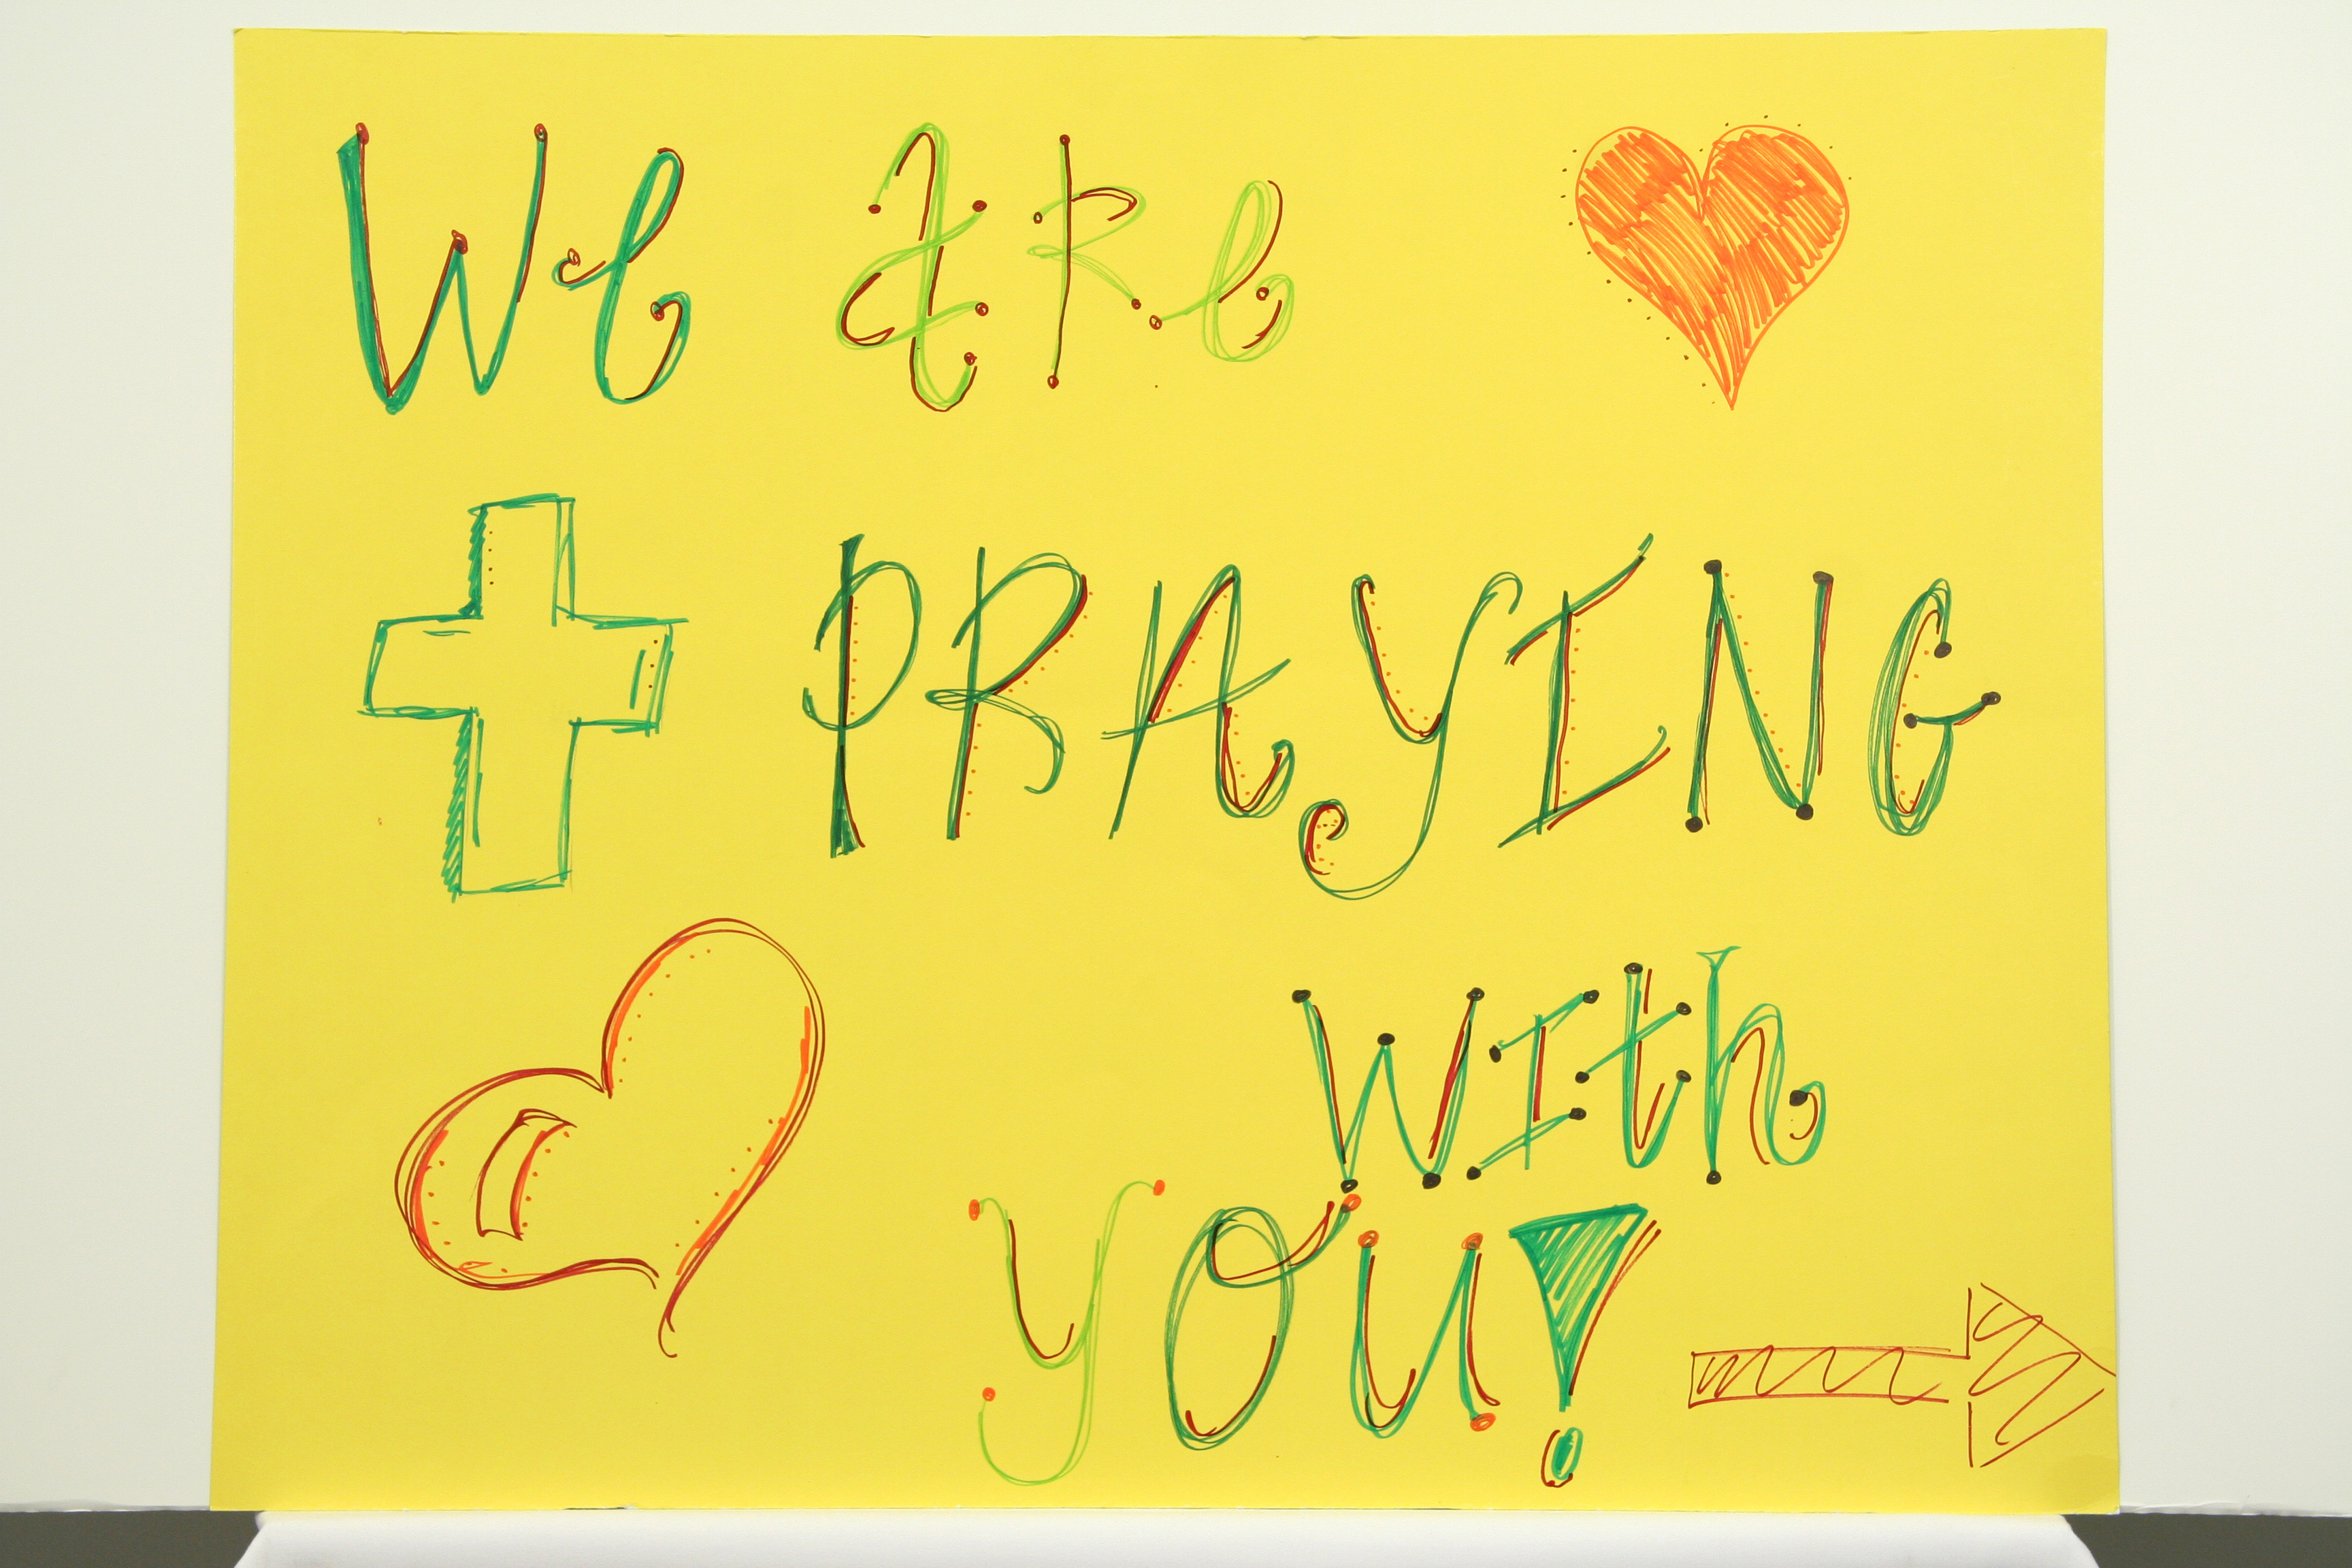 We aRe
PRAYING
WITth
YOU!